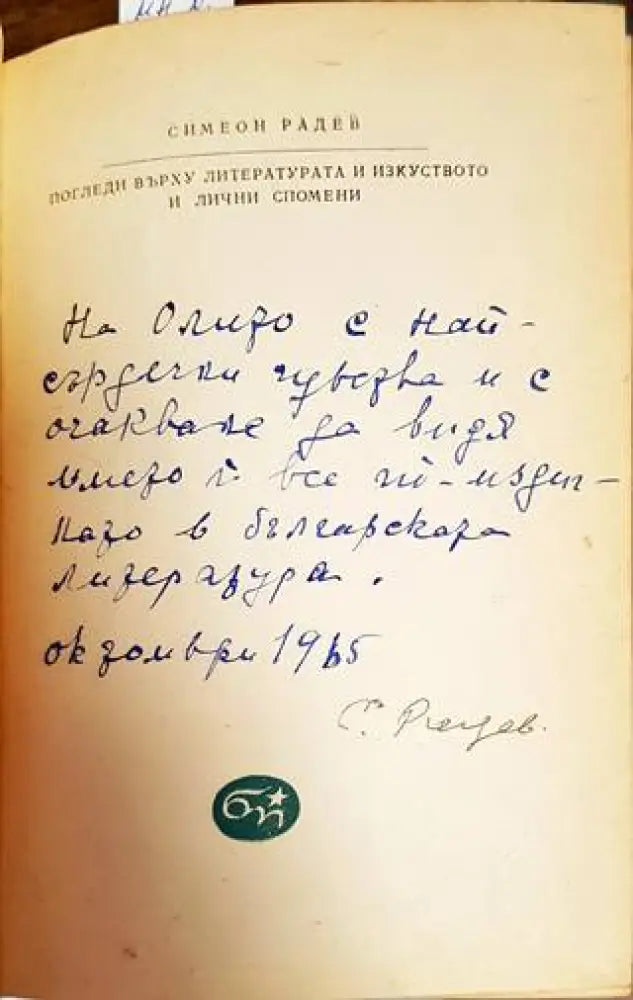 СИМЕОН РАДЕВ
ПОГЛЕДИ ВЪРХУ ЛИТЕРАТУРАТА И ИЗКУСТВОТО
И ЛИЧНИ СПОМЕНИ
На с най-
сърдечни чувства и с
очакване да видя
името ѝ все по-издиг-
нато в българската
литература.
октомври 1965
С. Радев.
бп